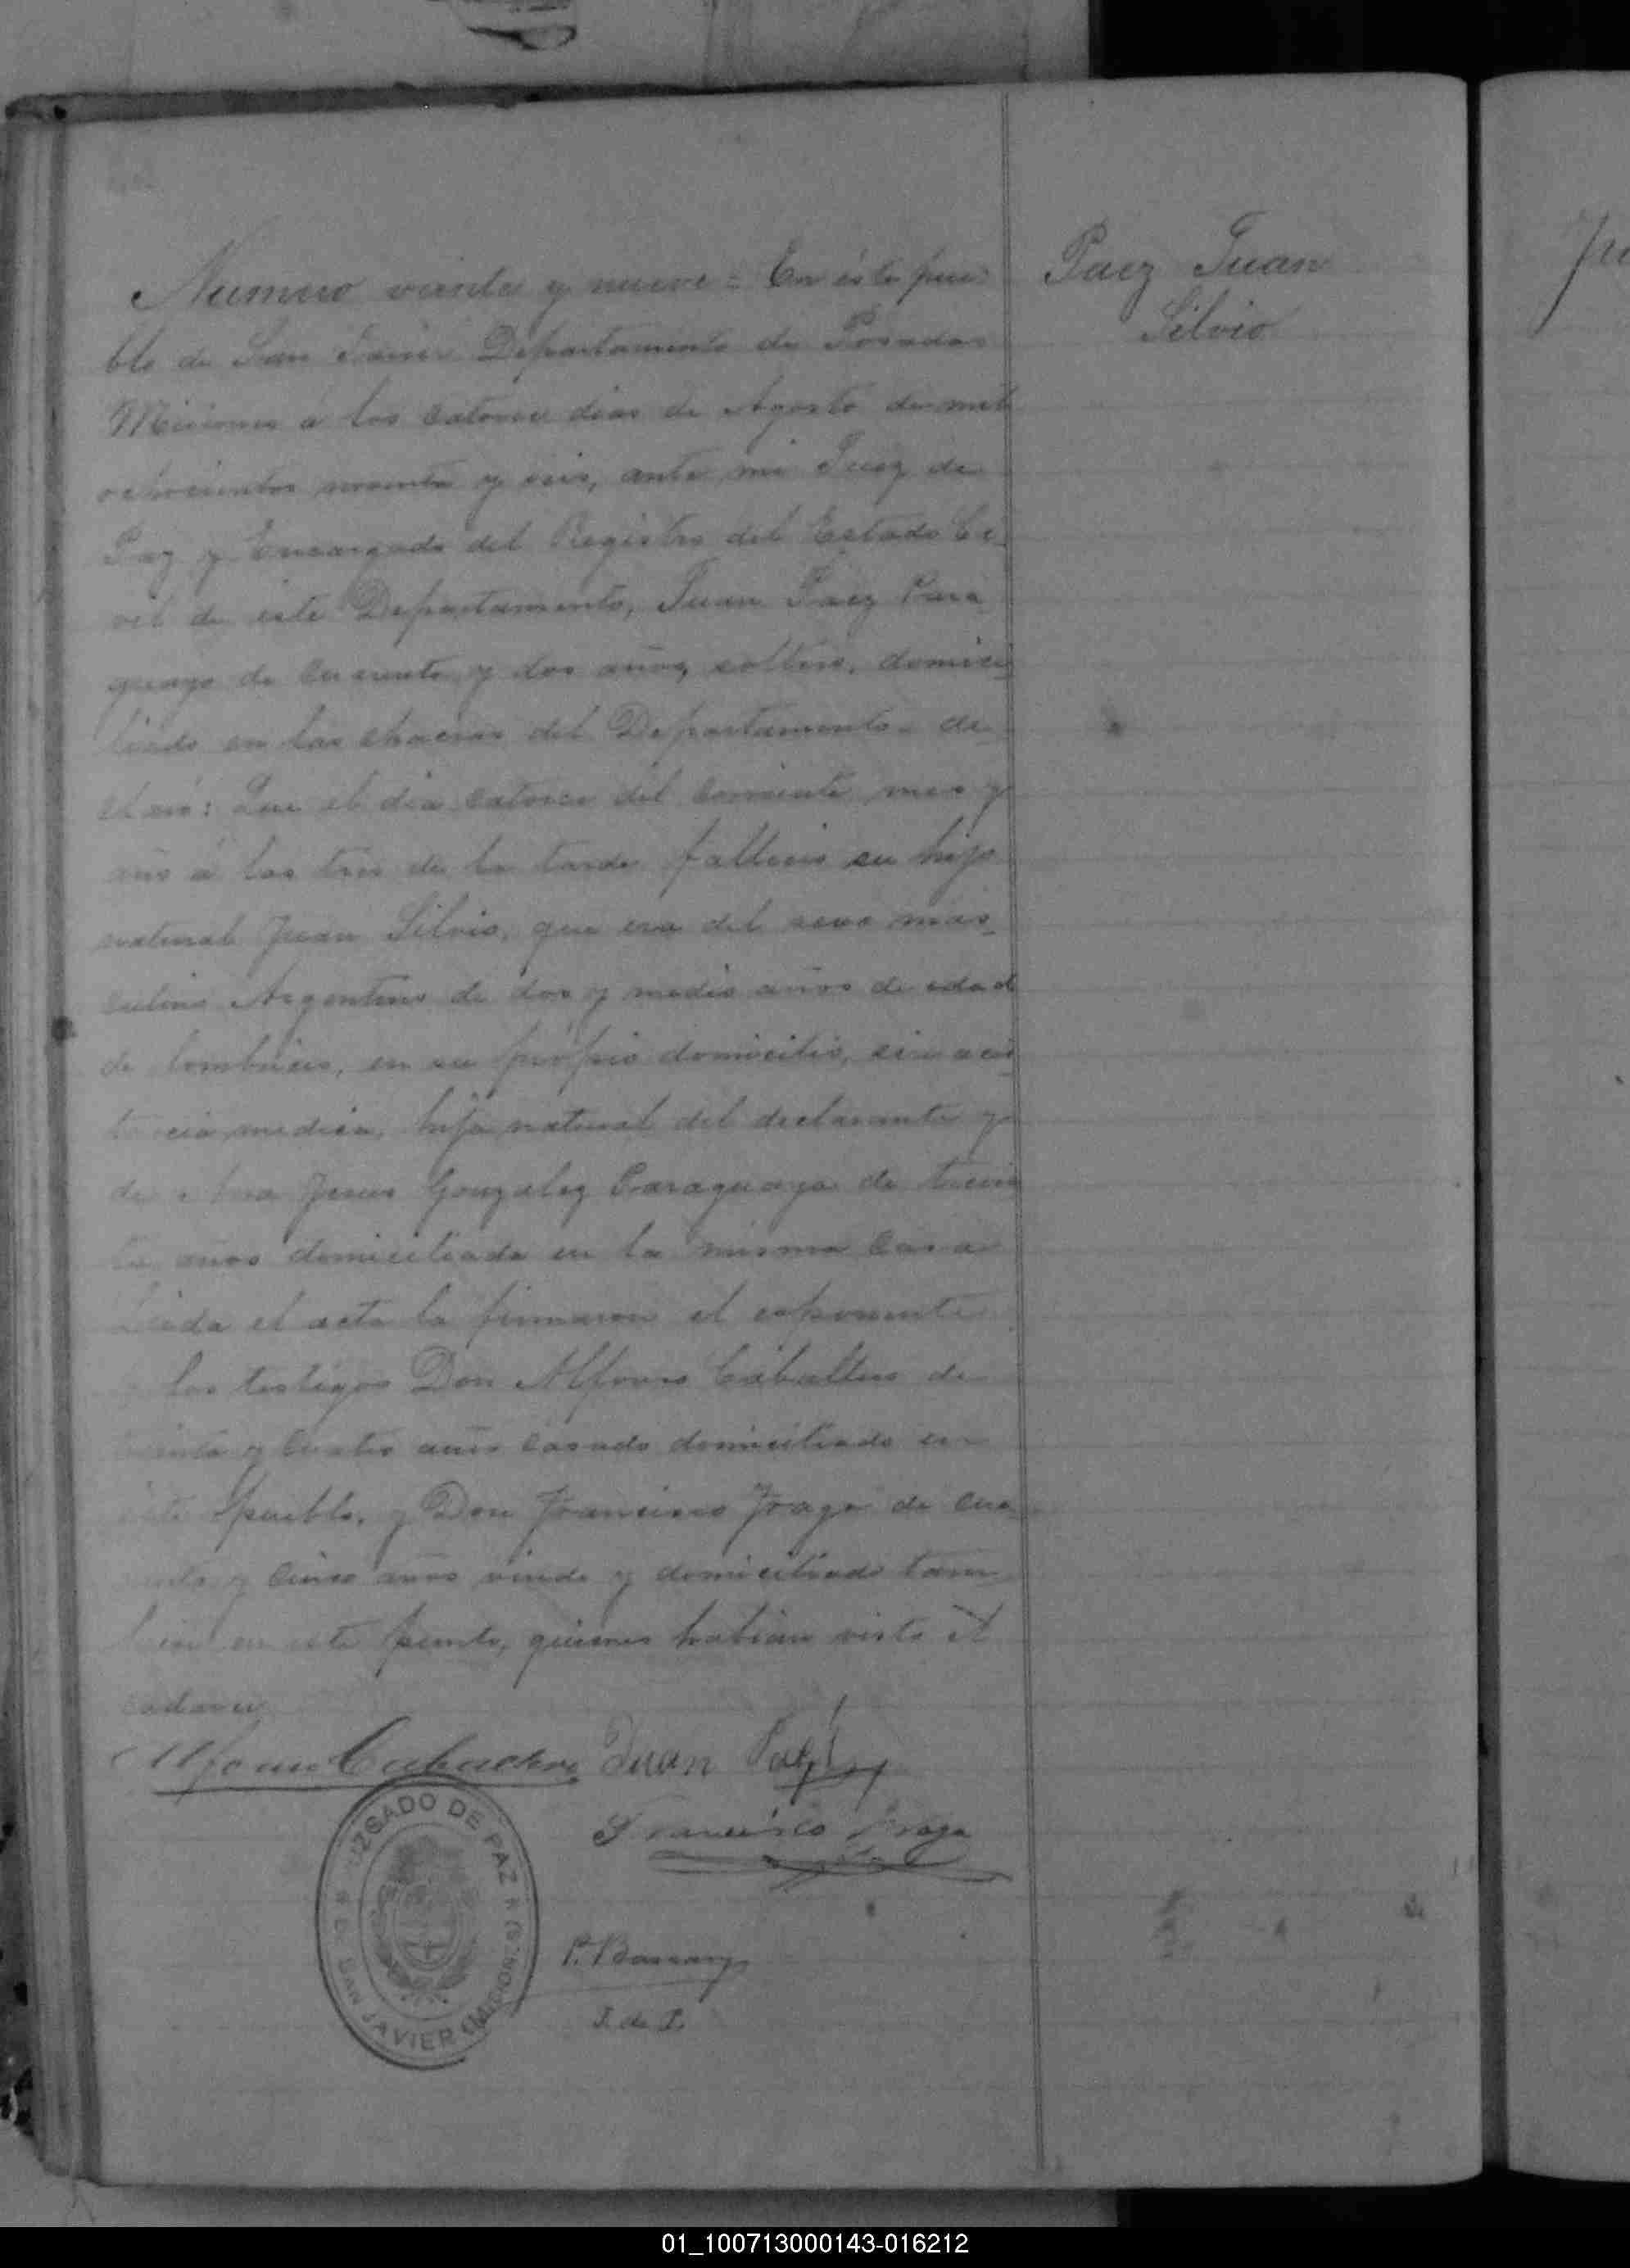 Numero veinte y nueve = En éste pue-
blo de San Javier Departamento de Posadas
Misiones á los catorce dias de Agosto de mil
ochocientos noventa y seis, ante mi Juez de
Paz y Encargado del Registro del Estado Ci-
vil de este Departamento, Juan Paez Para
guayo de cuarenta y dos años, soltero, domici-
liado en las chacras del Departamento de-
claró: Que el dia catorce del corriente mes y
año á las tres de la tarde fallecio su hijo
natural Juan Silvio, que era del sexo mas-
culino Argentino de dos y medio años de edad
de lombrices, en su propio domicilio, sin acis
tencia medica, hijo natural del declarante y
de Jesus Gonzalez Paraguaya de trein
ta años domiciliada en la misma casa
Leida el acta la firmaron el esponente
los testigos Don Alfonso Caballero de
y cuatro años casado domiciliado en
este pueblo, y Don Francisco Fraga de cua-
renta y cinco años viudo y domiciliado tam
bien en este punto, quienes habian visto el
cadaver
Paez Juan
Silvio
Alfonso Caballero Juan Paez
Francisco Fraga
J. de P.
JUZGADO DE PAZ
SAN JAVIER
01_100713000143-016212